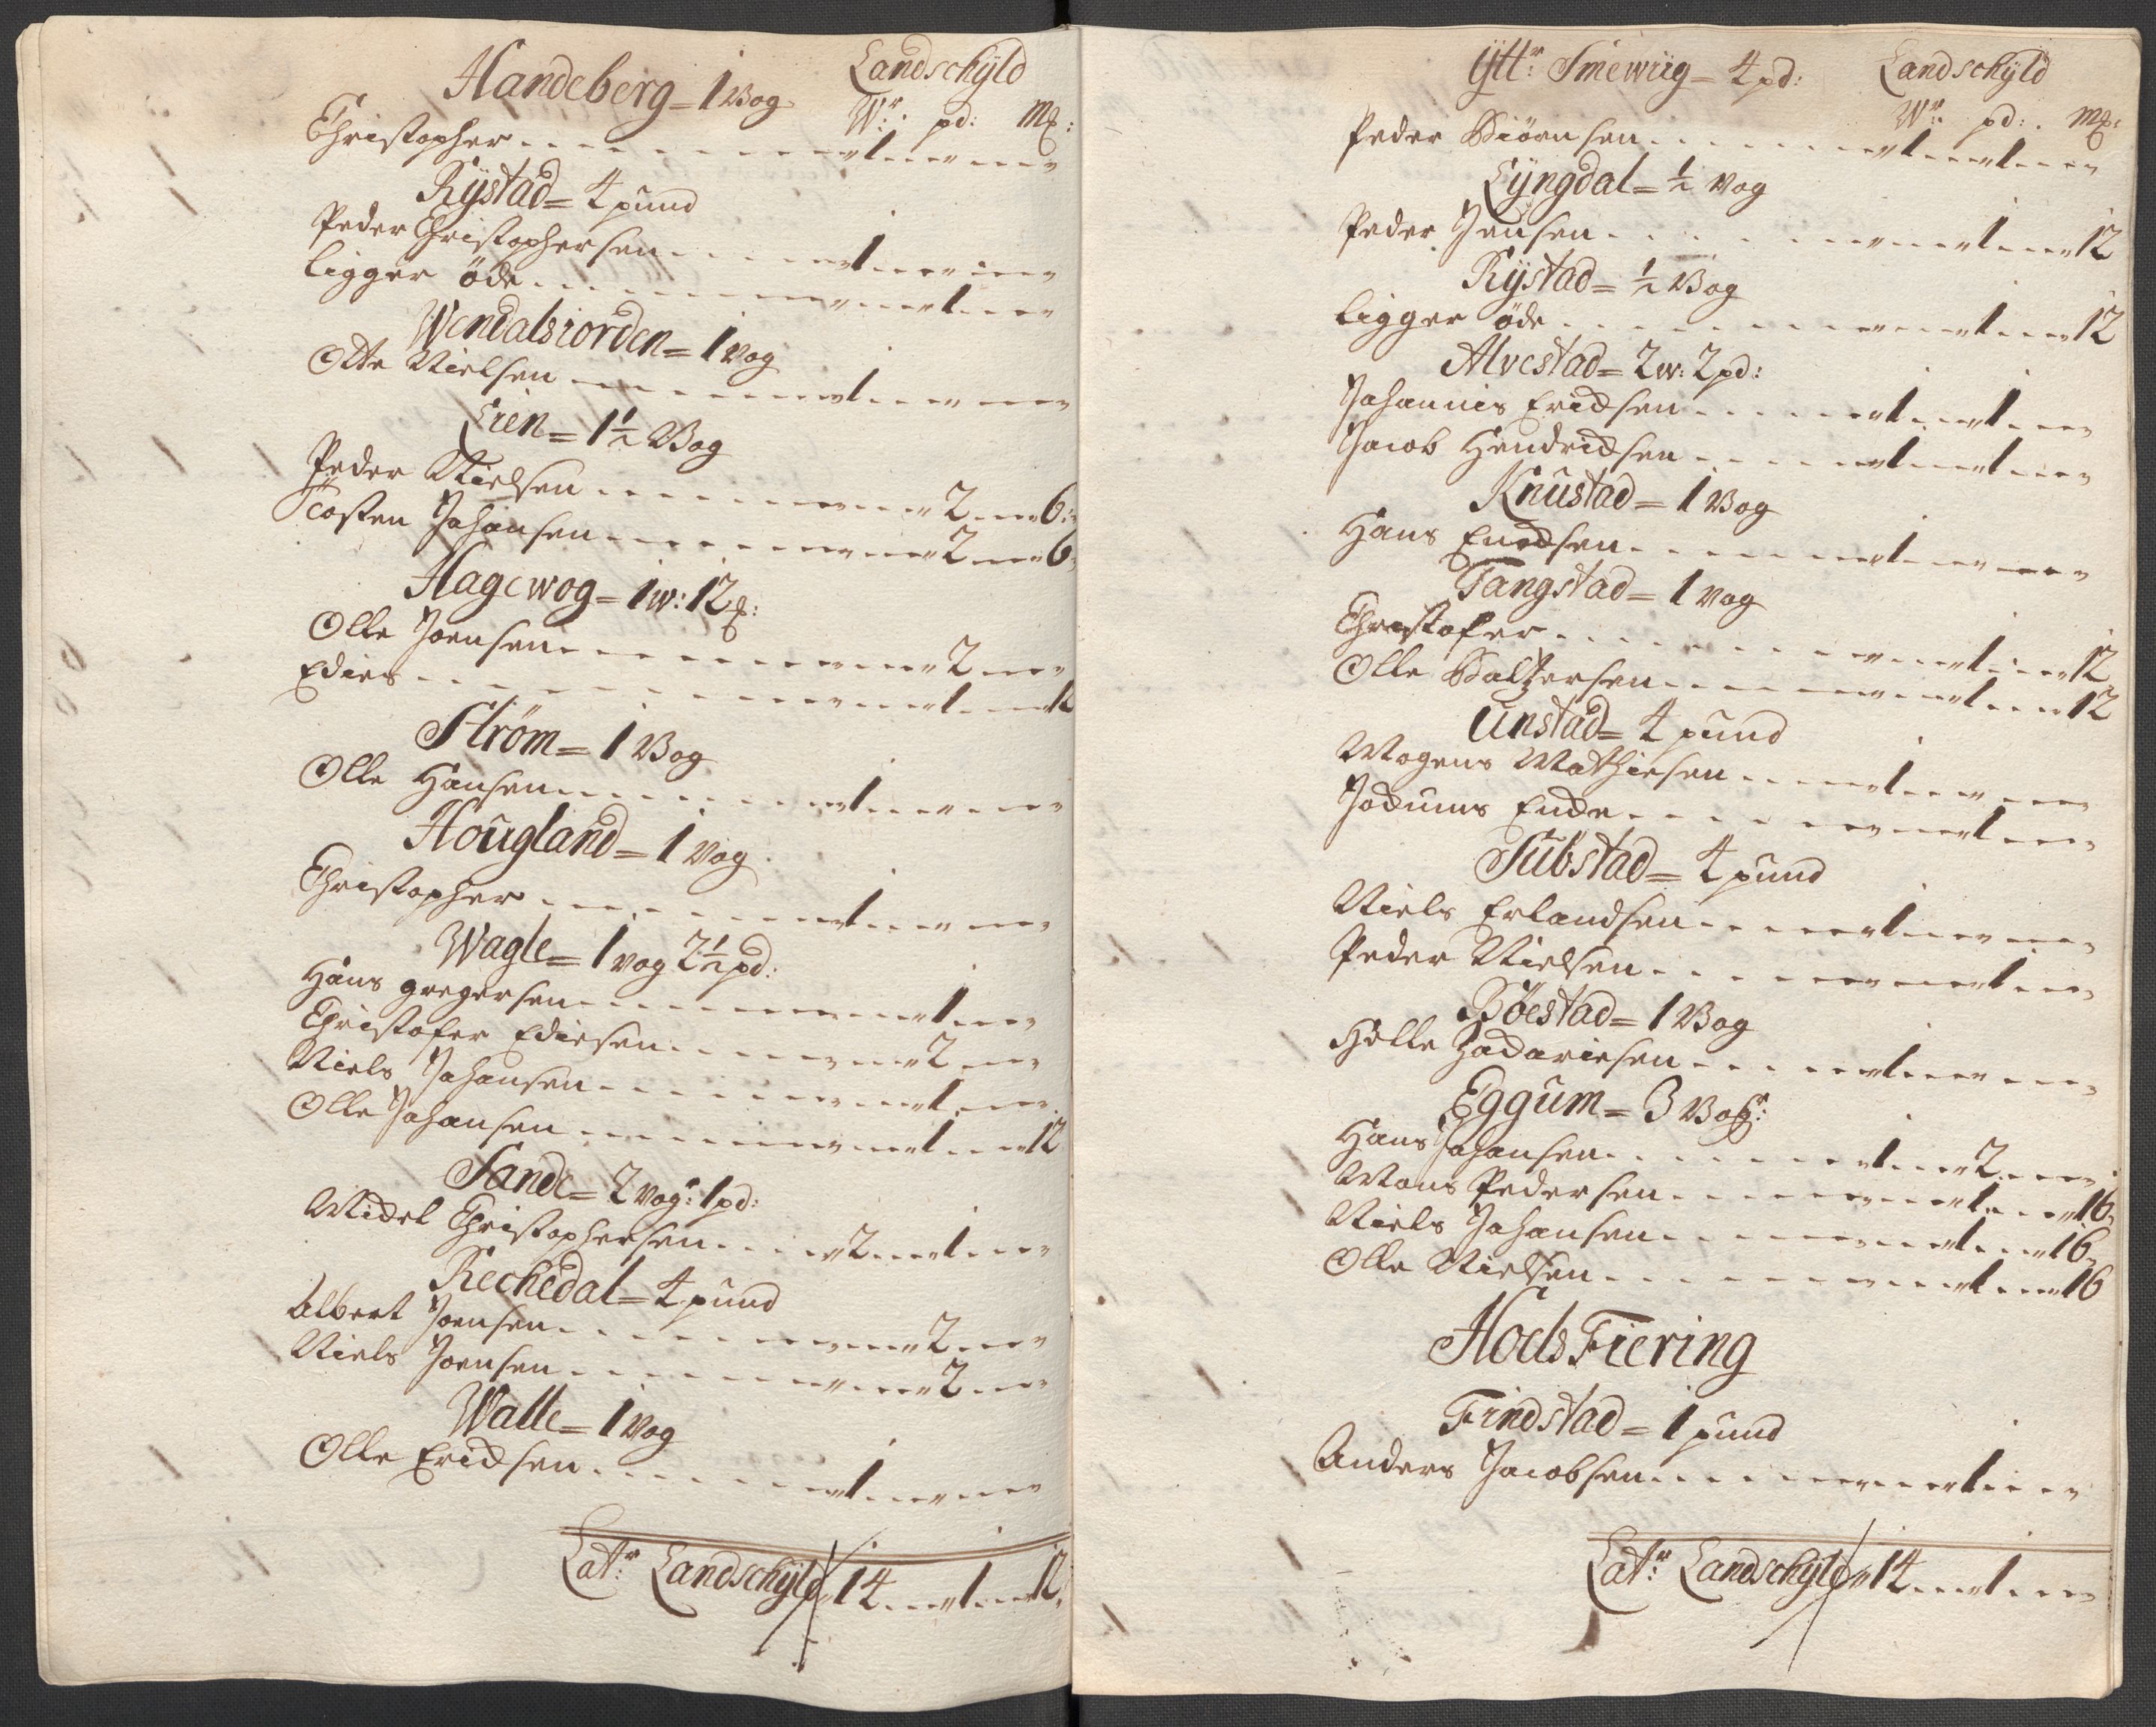 Handeberg = 1 Vog Landschÿld
Wr: pd: m₰:
Christopher . . . . 1 " "
Rÿstad = 4 pund
Peder Christophersen . . . . 1 " "
ligger öde . . . . " 1 "
Wendalsiorden = 1 Vog
Otte Nielsen . . . . 1 " "
Lien = 1½ Vog
Peder Nielsen . . . . " 2 " 6
Tosten Johansen . . . . " 2 " 6
Hagewog = 1 w: 12 ₰:
Olle Joensen . . . . " 2 "
Edies . . . . " 1 " 12
Strøm = 1 Vog
Olle Hansen . . . . 1 " "
Hougland = 1 Vog
Christopher . . . . 1 " "
Wagle = 1 Vog 2½ pd:
Hans gregersen . . . . " 1 "
Christofer Ediesen . . . . " 2 "
Niels Johansen . . . . " 1 "
Olle Johansen . . . . " 1 " 12
Sande = 2 Vogr: 1 pd:
Mickel Christophersen . . . . 2 " 1 "
Rechedal = 4 pund
Albert Joensen . . . . " 2 "
Niels Joensen . . . . " 2 "
Walle = 1 Vog
Olle Ericksen . . . . 1 " "
Latr: Landschÿld 14 " 1 " 12
Ÿttr: Smewiig = 4 pd: Landschÿld
Wr: pd: m₰:
Peder Biörnsen . . . . 1 " 1 "
Lÿngdal = ½ Vog
Peder Jensen . . . . " 1 " 12
Rÿstad = ½ Vog
ligger öde . . . . " 1 " 12
Alvestad = 2 w: 2 pd:
Johannis Ericksen . . . . 1 " 1 "
Jacob Hendricksen . . . . 1 " 1 "
Knustad = 1 Vog
Hans Enocksen . . . . 1 " "
Tangstad = 1 Vog
Christofer . . . . " 1 " 12
Olle Baltzersen . . . . " 1 " 12
Unstad = 4 pund
Mogens Mathiesen . . . . 1 " "
Jockums Encke . . . . " 1 "
Substad = 4 pund
Niels Erlandsen . . . . 1 " "
Peder Nielsen . . . . " 1 "
Böestad = 1 Vog
Helle Zackariesen . . . . 1 " "
Eggum = 3 Vogr:
Hans Johansen . . . . 1 " 2 "
Mons Pedersen . . . . " 1 " 16
Niels Johansen . . . . " 1 " 16
Olle Nielsen . . . . " 1 " 16
Hols Fiering
Findstad = 1 pund
Anders Jacobsen . . . . " 1 "
Latr: Landschÿld 14 " 1 "